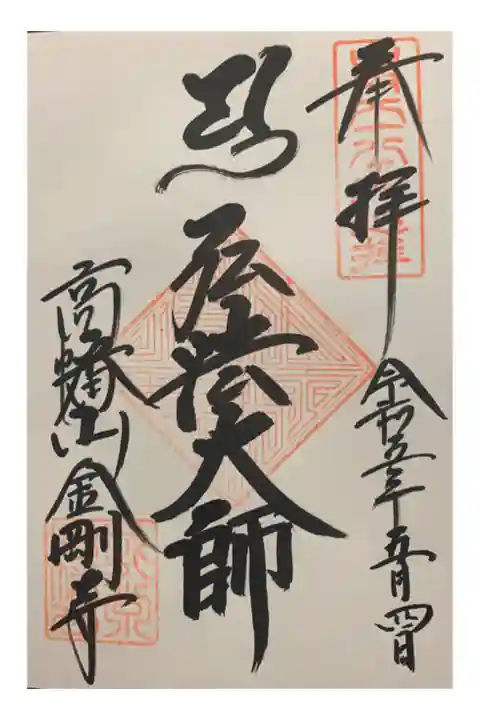 奉拝
令和五年五月四日
弘法大師
高幡山金剛寺